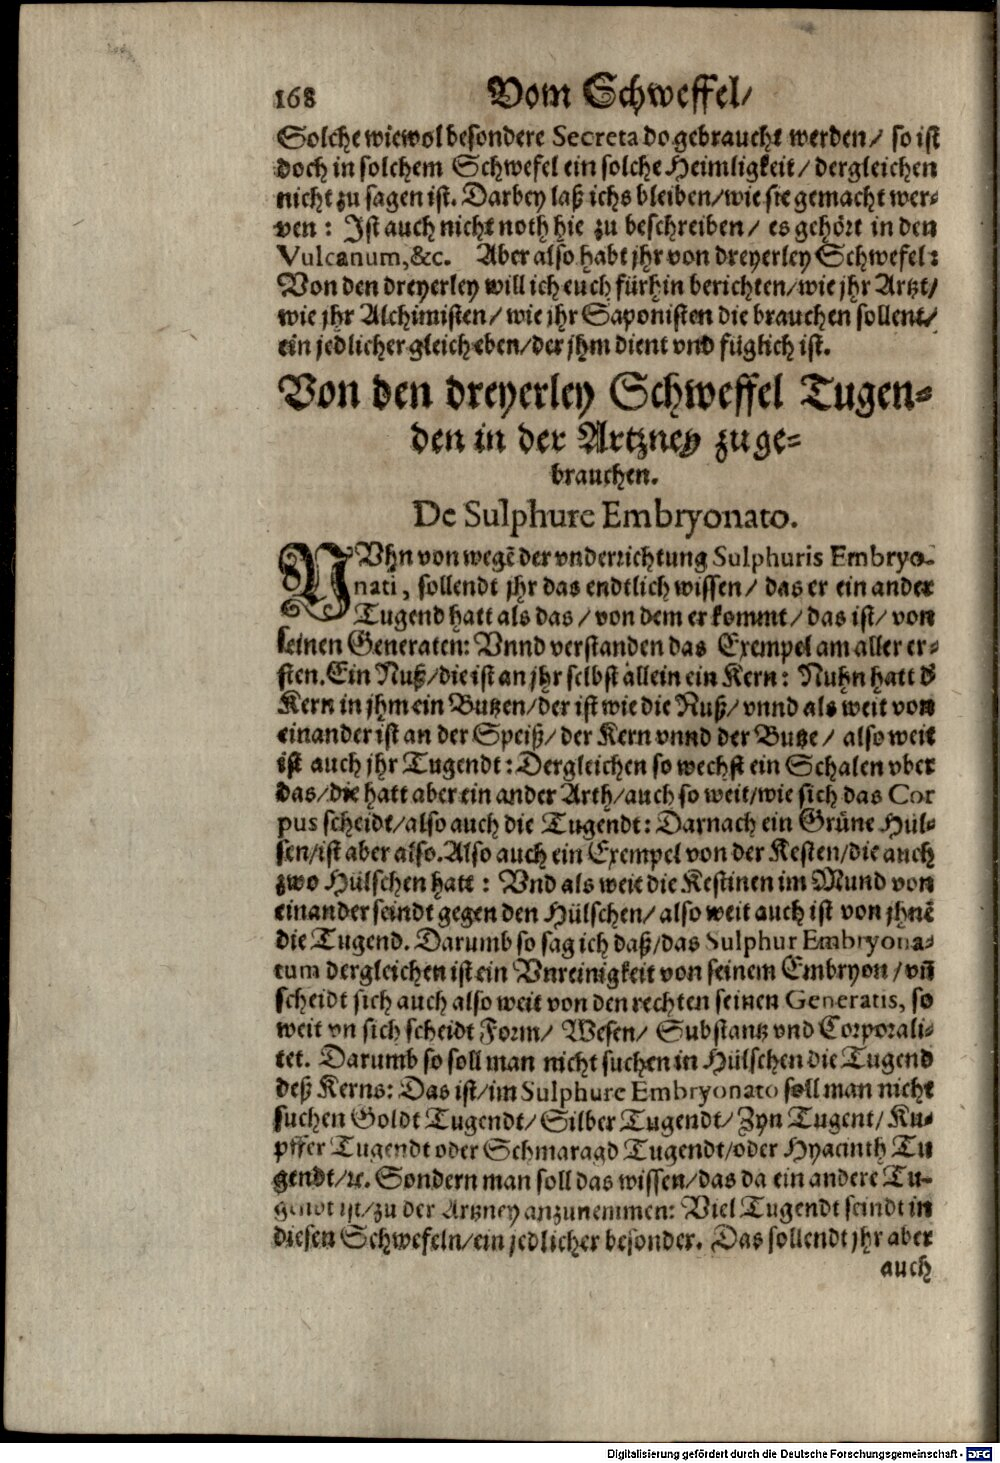 168 Vom Schweffel/
Solche wiewol besondere Secreta do gebraucht werden/ so ist
doch in solchem Schwefel ein solche Heimligkeit/ dergleichen
nicht zu sagen ist. Darbey laß ichs bleiben/wie sie gemacht wer-
ven: Ist auch nicht noth hie zu beschreiben/ es gehört in den
Vulcanum,&c. Aber also habt jhr von dreyerley Schwefel:
Von den dreyerley will ich euch fürhin berichten/wie jhr Artzt/
wie jhr Alchimisten/ wie jhr Saponisten die brauchen sollent/
ein jedlicher gleich eben/der jhm dient vnd füglich ist.
Von den dreyerley Schweffel Tugen-
den in der Artzney zu ge-
brauchen.
De Sulphure Embryonato.
NVhn von wegẽ der vnderrichtung Sulphuris Embryo-
nati, sollendt jhr das endtlich wissen/ das er ein ander
Tugend hatt als das/ von dem er kommt/ das ist/ von
seinen Generaten: Vnnd verstanden das Exempel am aller er-
sten. Ein Nuß/die ist an jhr selbst allein ein Kern: Nuhn hatt d'
Kern in jhm ein Butzen/der ist wie die Nuß/ vnnd als weit von
einander ist an der Speiß/ der Kern vnnd der Butze/ also weit
ist auch jhr Tugendt: Dergleichen so wechst ein Schalen vber
das/die hatt aber ein ander Arth/auch so weit/wie sich das Cor
pus scheidt/also auch die Tugendt: Darnach ein Grüne Hül-
sen/ist aber also. Also auch ein Exempel von der Kesten/die auch
zwo Hülschen hatt: Vnd als weit die Kestinen im Mund von
einander seindt gegen den Hülschen/ also weit auch ist von jhnẽ
die Tugend. Darumb so sag ich daß/das Sulphur Embryona-
tum dergleichen ist ein Vnreinigkeit von seinem Embryon/ vñ
scheidt sich auch also weit von den rechten seinen Generatis, so
weit vn sich scheidt Form/ Wesen/ Substantz vnd Corporali-
tet. Darumb so soll man nicht suchen in Hülschen die Tugend
deß Kerns: Das ist/im Sulphure Embryonato soll man nicht
suchen Goldt Tugendt/ Silber Tugendt/ Zyn Tugent/ Ku-
pffer Tugendt oder Schmaragd Tugendt/oder Hyacinth Tu
gendt/ꝛc. Sondern man soll das wissen/das da ein andere Tu-
gendt ist/zu der Artzney anzunemmen: Viel Tugendt seindt in
diesen Schwefeln/ein jedlicher besonder. Das sollendt jhr aber
auch
Digitalisierung gefördert durch die Deutsche Forschungsgemeinschaft - DFG